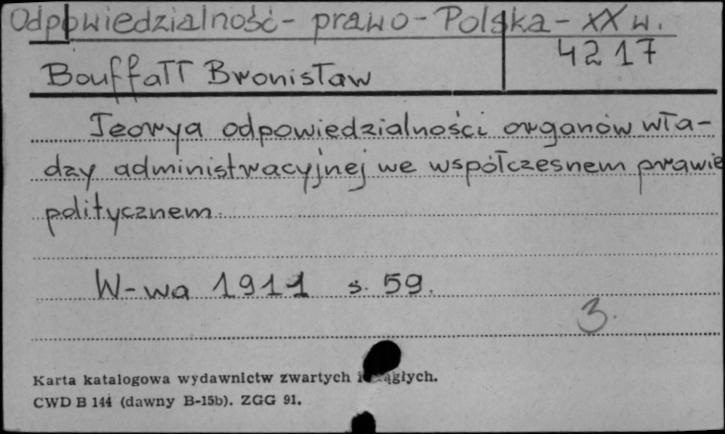 Odpowiedzialność - prawo - Polska - XX w.
4217
Bouffałł Bronisław
Teorya odpowiedzialności organów wła-
dzy administracyjnej we współczesnem prawie
politycznem.
W-wa 1911 s. 59.
3.
Karta katalogowa wydawnictw zwartych i ciągłych.
CWD B 144 (dawny B-15b). ZGG 91.